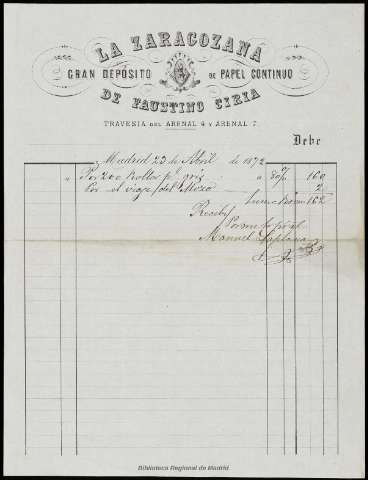 LA ZARAGOZANA
GRAN DEPÓSITO DE PAPEL CONTINUO
DE FAUSTINO CIRIA
TRAVESIA DEL ARENAL 4 Y ARENAL 7.
Debe
Madrid 23 de Abril de 1872
" Por 200 gris " 80% 160
Por el viaje del Mozo 2
162
Recibí
Manuel Laplana
Biblioteca Regional de Madrid